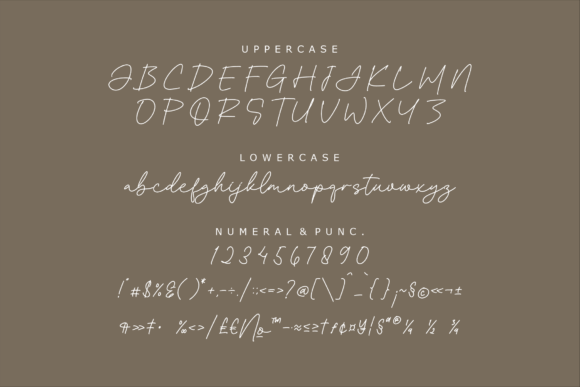 UPPERCASE
ABCDEFGHIJKLMN
OPQRSTUVWXYZ
LOWERCASE
abcdefghijklmnopqrstuvwxyz
NUMERAL & PUNC.
1234567890
!"#$%&()*+,-÷./:;<=>?@[\]^_`{}¡~§©«¬±
»‡· ‰<>/£€№™–·≈≤≥†ƒ¢¤¥¦§ªº® ¼ ½ ¾